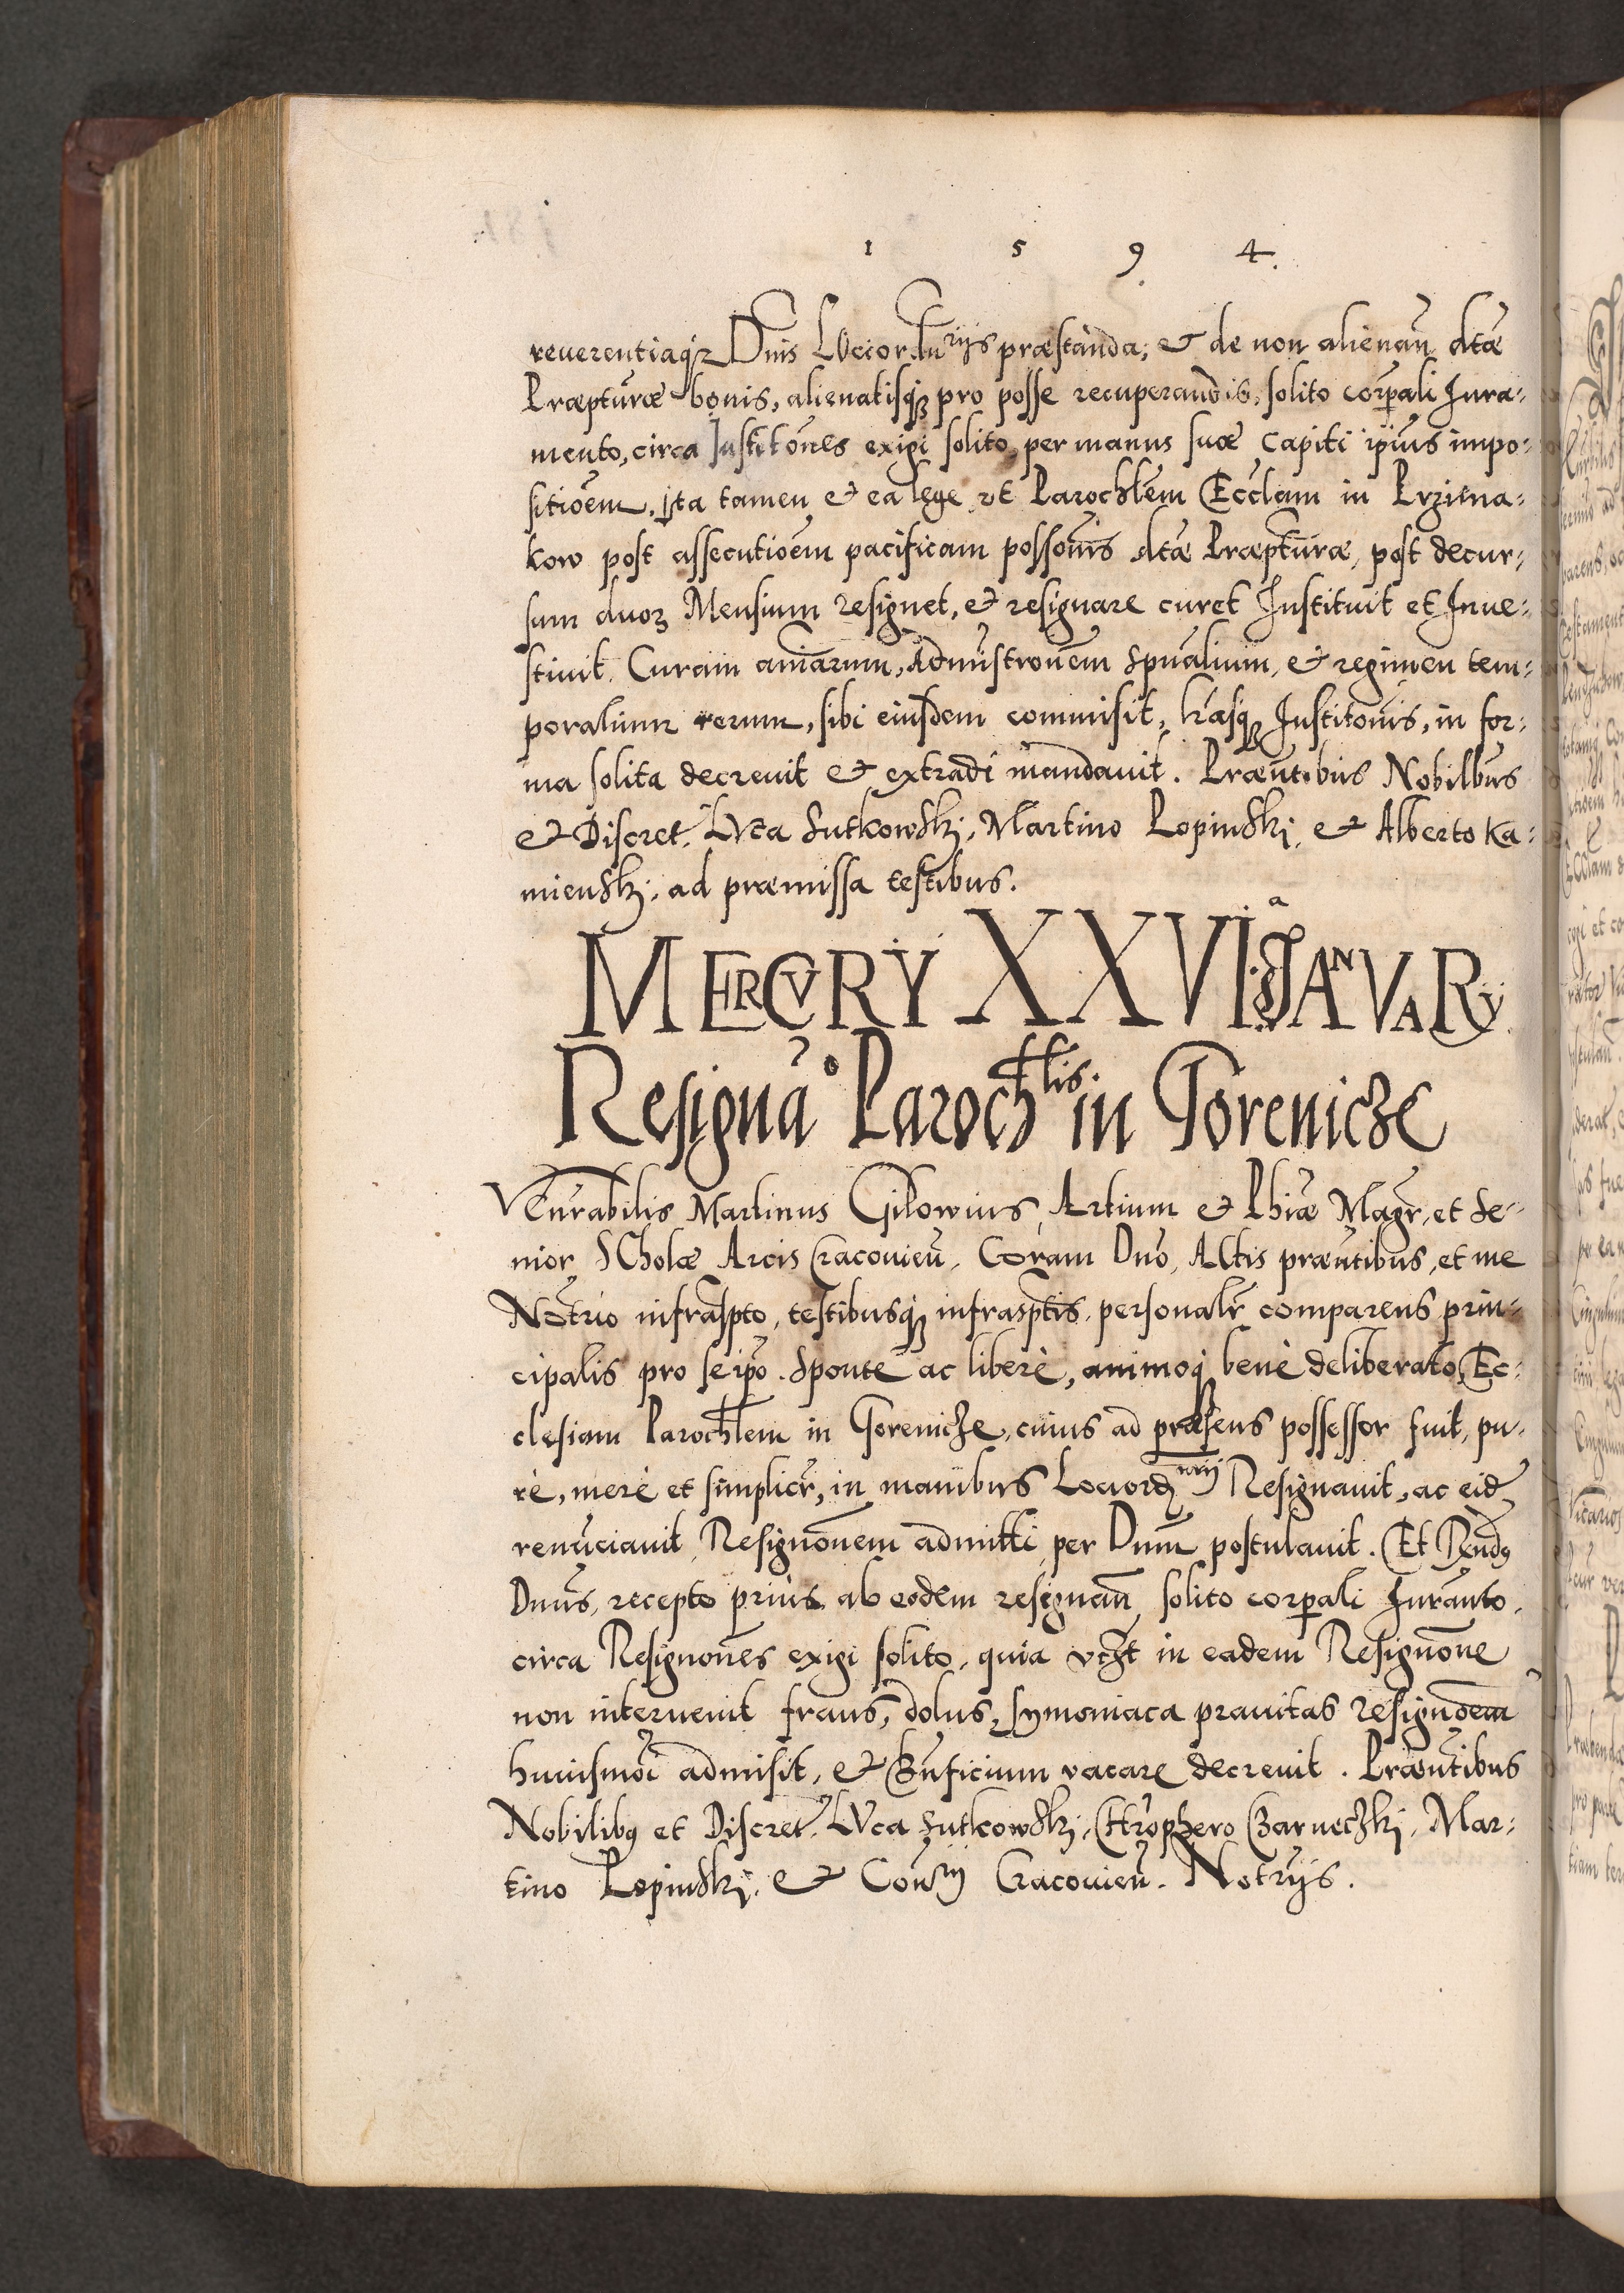 1 5 9 4.
reuerentiaq₃ Dnis LOciordinrijs præstanda; & de non alienan dtæ
Præpturæ bonis, alienatisq₃ pro posse recuperandis, solito corpali Iura-
mento, circa Institones exigi solito, per manus suæ capiti ipius impo-
sitioem. Ita tamen & ea lege, vt Parochlem Ecclam in Przima-
kow post assecutioem pacificam possonis dtæ Præpturæ, post decur-
sum duoꝝ Mensium resignet, & resignare curet Instituit et Inue-
stiuit. Curam aniarum, Admistronem Spualium, & regimen tem-
poralium rerum, sibi eiusdem commisit, lrasq₃ Institonis, in for-
ma solita decreuit & extradi mandauit. Præntibus Nobilbus
& Discret. LVca Sutkowski, Martino Lopinski, & Alberto Ka-
mienski, ad præmissa testibus.
MERCVRY XXVIa JANVARy
Resignao Parochlis in Gorenicze
VEnrabilis Martinus Gilowius, Artium & Phiæ Magr, et Se-
nior SCholæ Arcis Cracouien, Coram Dno, ACtis præntibus, et me
Notrio infraspto, testibusq₃ infrasptis, personalr comparens prin-
cipalis pro seipo. Sponte ac liberè, animoq₃ benè deliberato, Ec-
clesiam Parochlem in Gorenicze, cuius ad præsens possessor fuit, pu-
rè, merè et simplicr, in manibus Lociordnrij Resignauit, ac eid
renuciauit, Resignonem admitti per Dnum postulauit. Et Rndꝰ
Dnus, recepto prius ab eodem resignan solito corpali Iuranto,
circa Resignones exigi solito, quia vczt in eadem Resignone
non interuenit fraus, dolus, symoniaca prauitas resignoem
huiusmoi admisit, & Bnficium vacare decreuit. Præntibus
Nobilibꝰ et Discret. LVca Sutkowski, Chrophero Czarneczki, Mar-
tino Lopinski, & Conrij Cracouien. Notrijs.